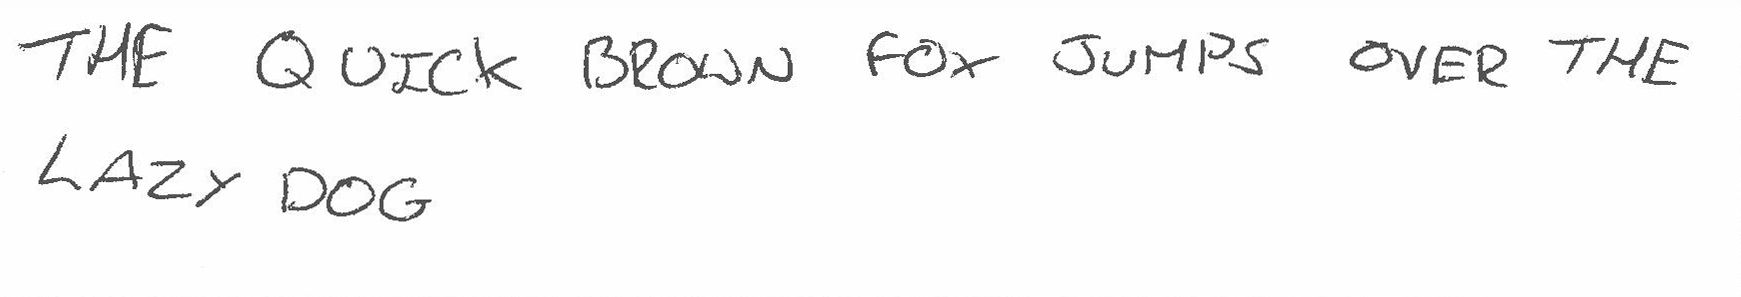 THE QUICK BROWN FOX JUMPS OVER THE
LAZY DOG